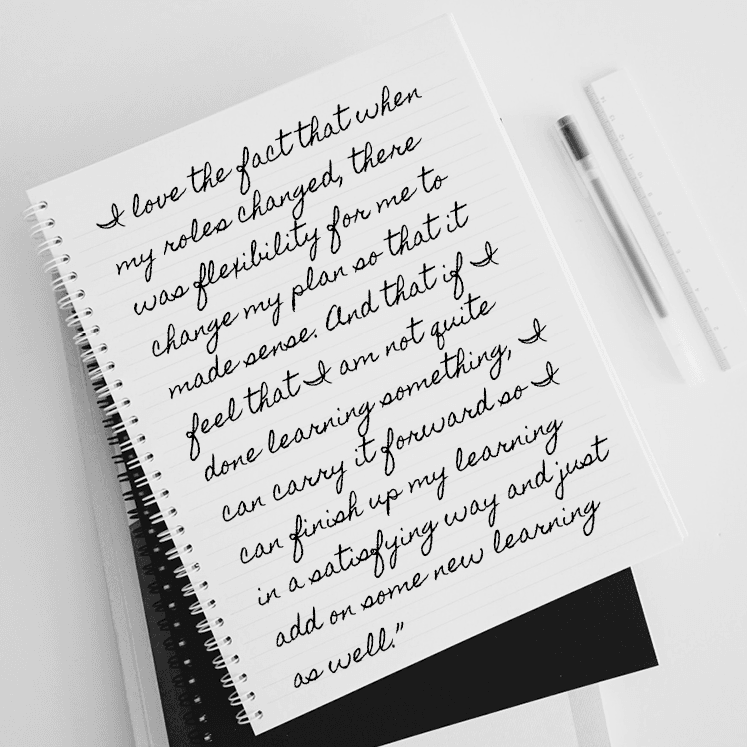 I love the fact that when
my roles changed, there
was flexibility for me to
change my plan so that it
made sense. And that if I
feel that I am not quite
done learning something, I
can carry it forward so I
can finish up my learning
in a satisfying way and just
add on some new learning
as well."